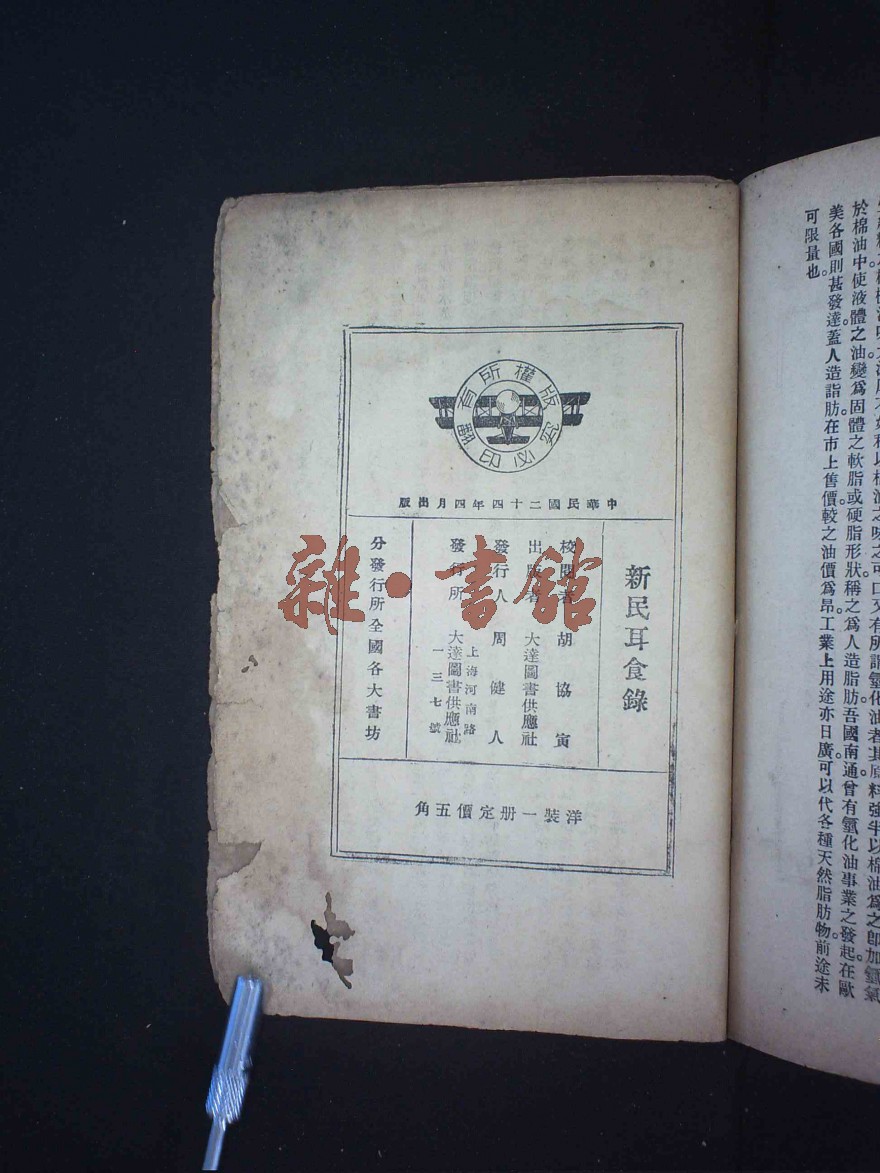 版權所有
翻印必究
中華民國二十四年四月出版
新民耳食錄
校閱者 胡協寅
出版者 大達圖書供應社
發行人 周健人
發行所 上海河南路一三七號
大達圖書供應社
分發行所 全國各大書坊
洋裝一册定價五角
雜·書館
於棉油中使液體之油變爲固體之軟脂或硬脂形狀稱之爲人造脂肪。吾國南通曾有氫化油事業之發起在歐
美各國則甚發達蓋人造脂肪在市上售價較之油價爲昂工業上用途亦日廣可以代各種天然脂肪物前途未
可限量也。